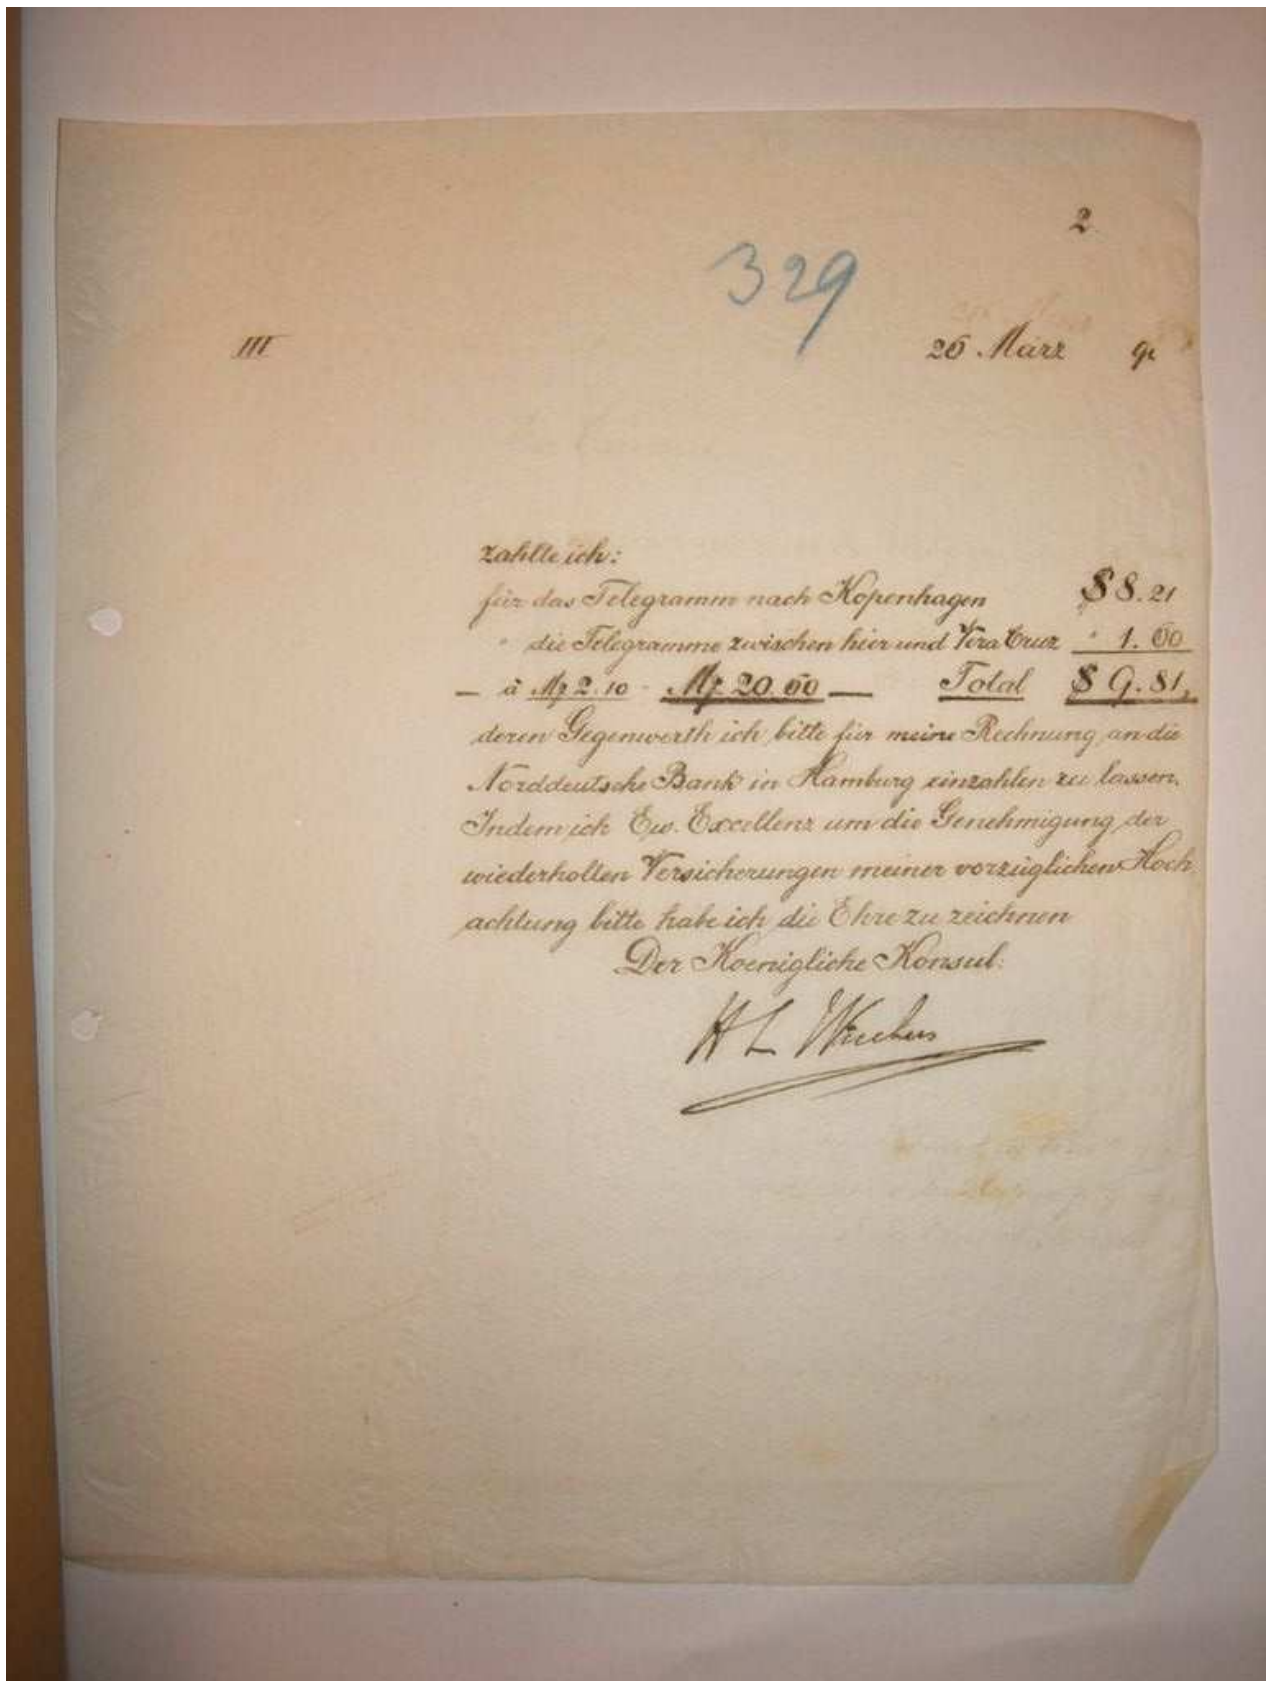 2
329
III
26 März
zahlte ich:
für das Telegramm nach Kopenhagen $ 8.21
" die Telegramme zwischen hier und Vera Cruz " 1.60
— à M 2.10 - M 20.60 — Total $ 9.81,
deren Gegenwerth ich bitte für meine Rechnung an die
Norddeutsche Bank in Hamburg einzahlen zu lassen.
Indem ich Ew. Excellenz um die Genehmigung der
wiederholten Versicherungen meiner vorzüglichen Hoch
achtung bitte habe ich die Ehre zu zeichnen
Der Koenigliche Konsul:
H L